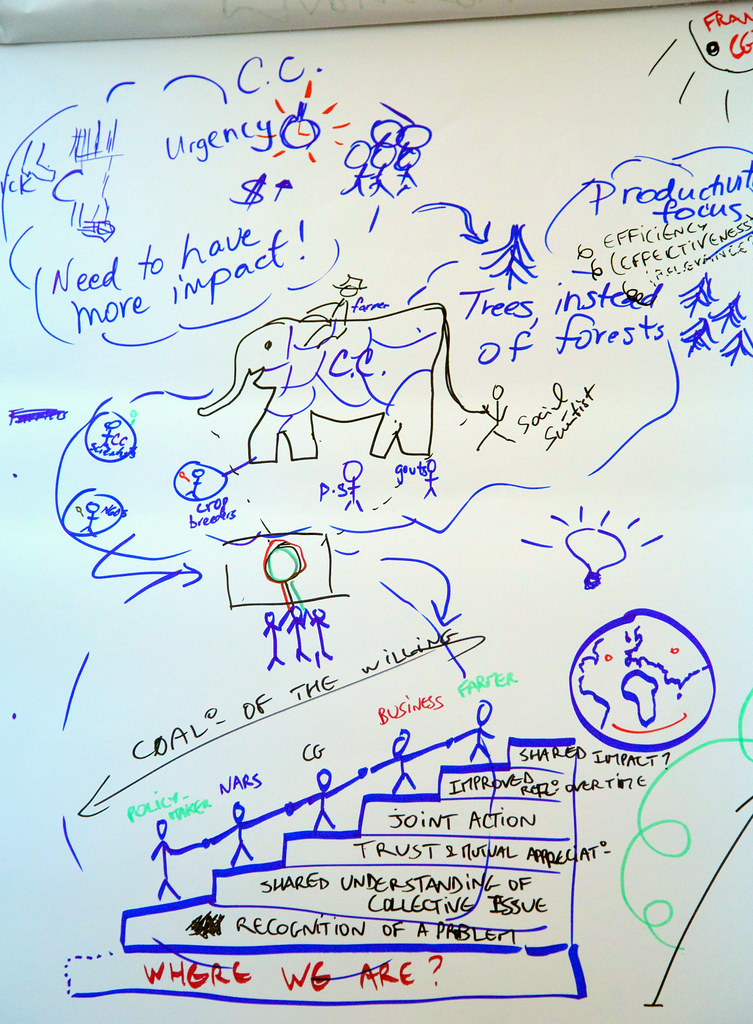 C.C.
Urgency
$
Need to have
more impact!
Productivity
focus
EFFICIENCY
Trees, instead
of forests
farmer
C.C.
Social
Scientist
CC
scientists
NGOs
crop
breeders
P.S
gouts
COAL° OF THE WILLING
POLICY-
MAKER
NARS
CG
BUSINESS
FARMER
SHARED IMPACT?
IMPROVED
REL° OVERTIME
JOINT ACTION
TRUST & MUTUAL APPRECIAT°
SHARED UNDERSTANDING OF
COLLECTIVE ISSUE
RECOGNITION OF A PROBLEM
WHERE WE ARE?